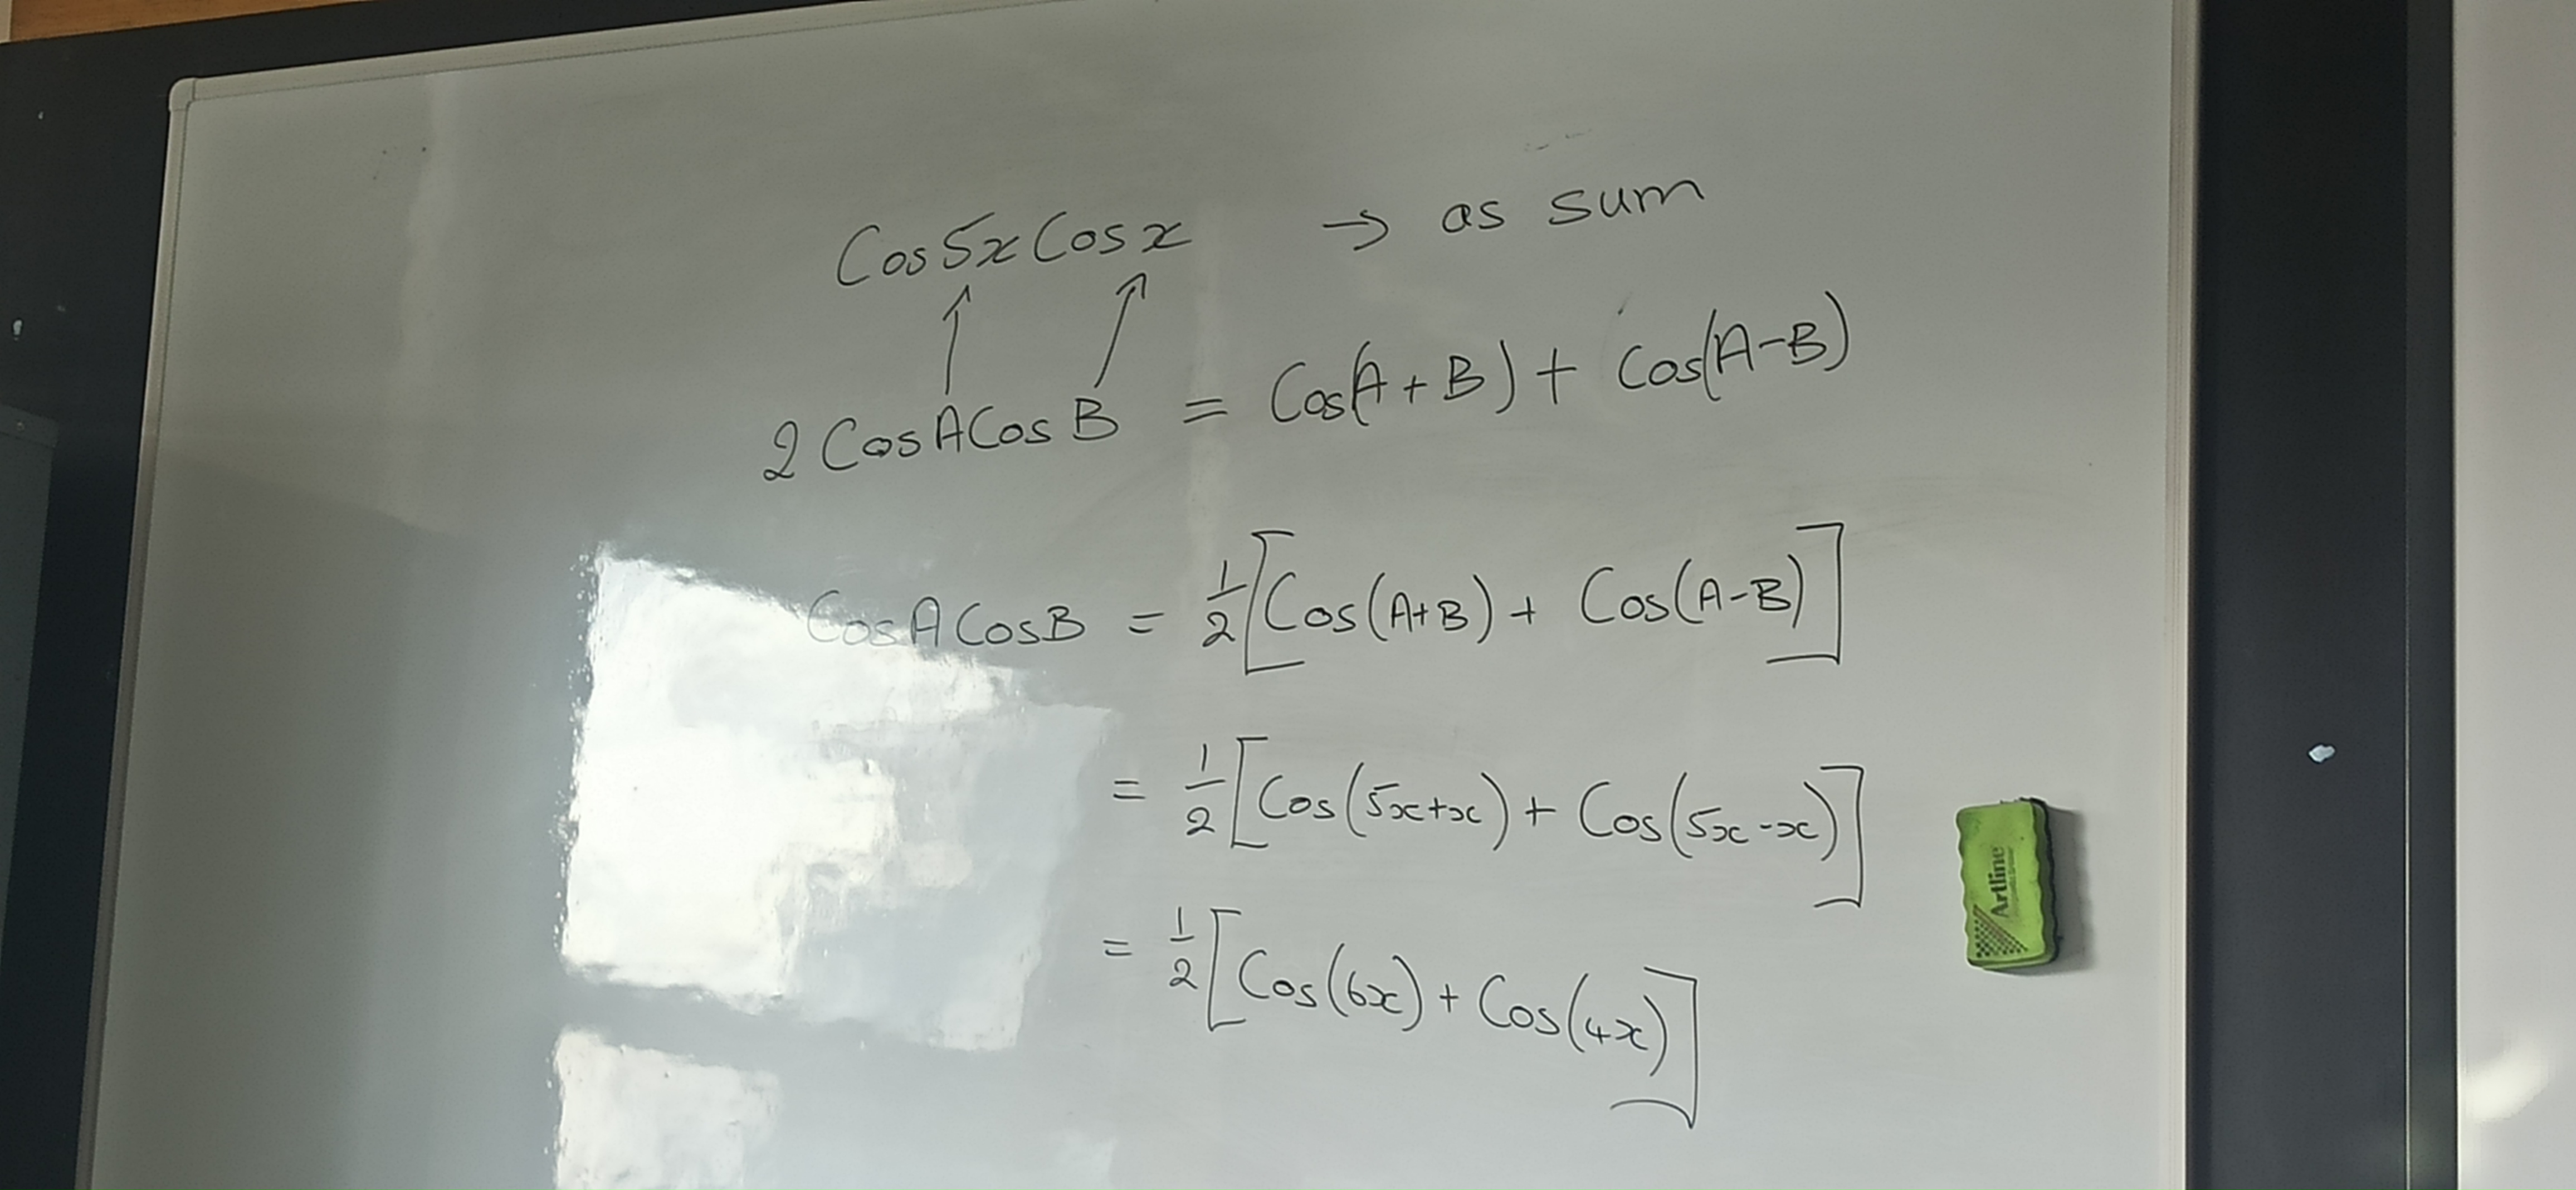 Cos5xCosx → as sum
2CosACosB = Cos(A+B)+ Cos(A-B)
CosACosB = 1/2[Cos(A+B)+ Cos(A-B)]
= 1/2[Cos(5x+x)+ Cos(5x-x)]
= 1/2[Cos(6x)+ Cos(4x)]
Artline